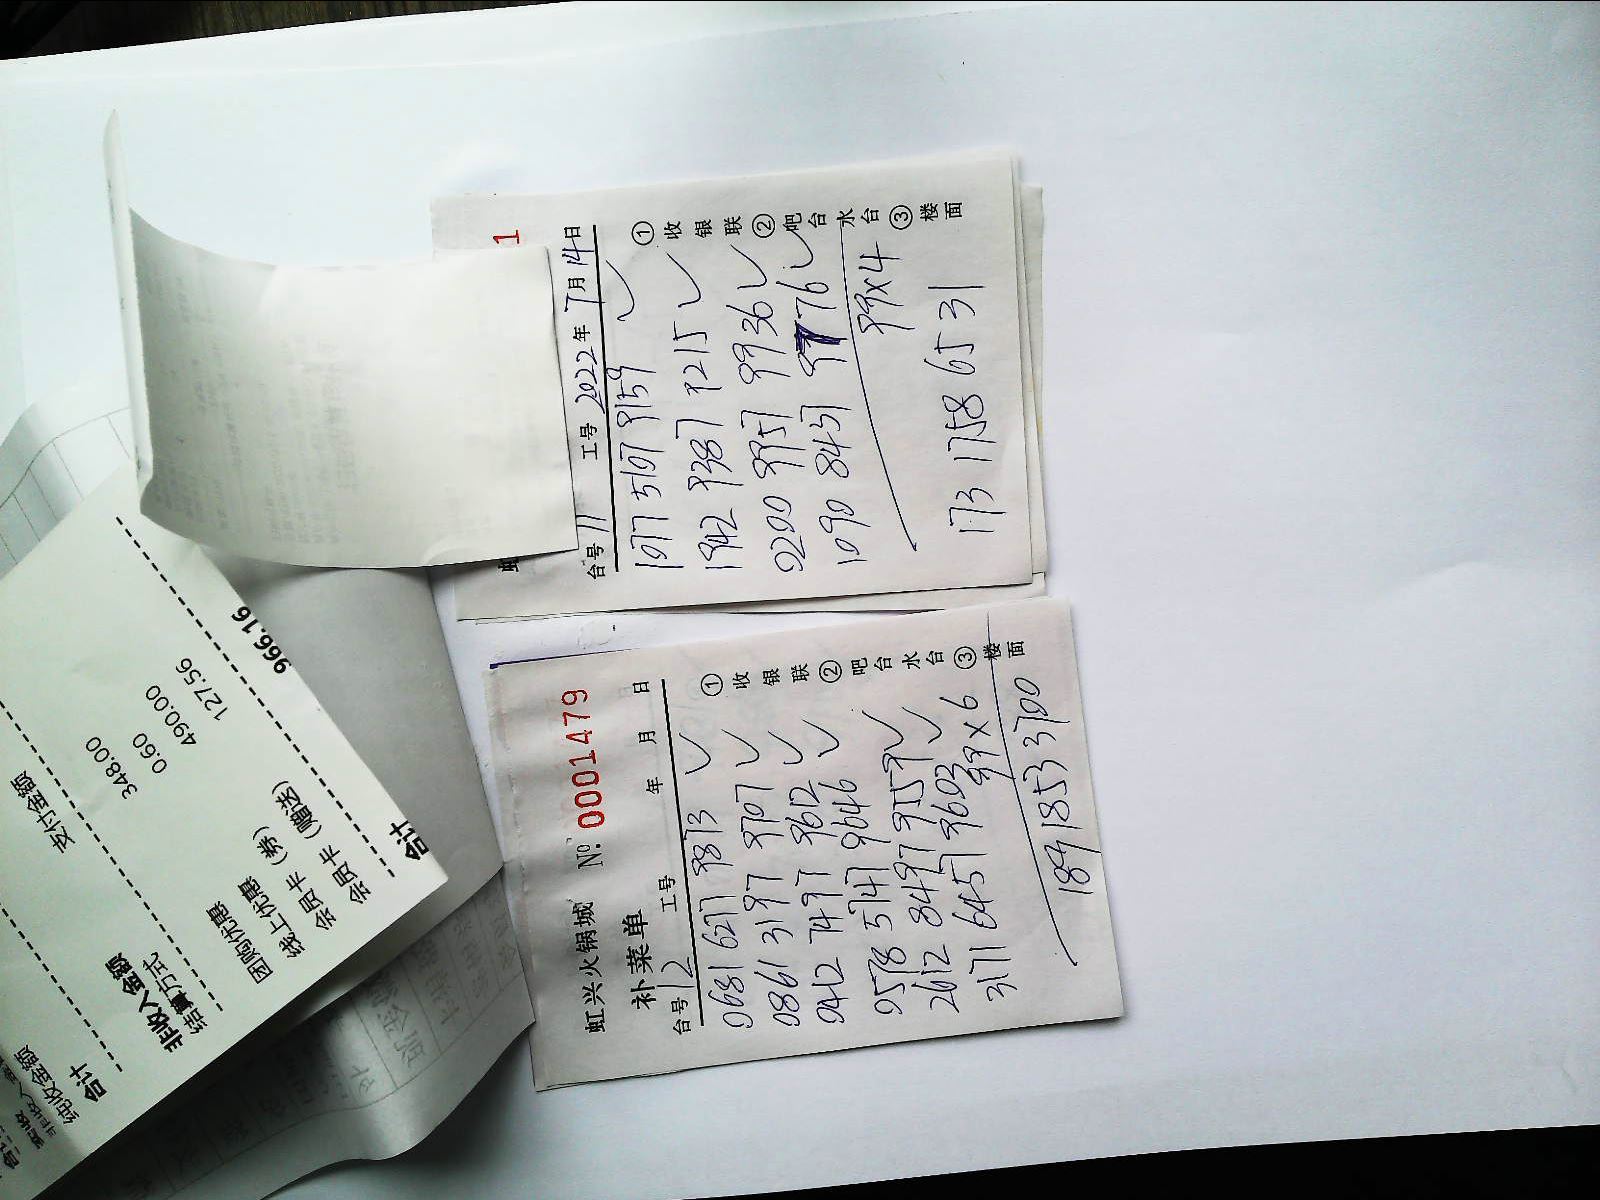 虹兴火锅城 № 0001479
补菜单
台号 12 工号 年 月 日
9681 6277 9813
0861 3197 9707
9412 7497 9612
9578 5747 9646
2612 8497 9159
3171 6457 9603
99×6
189 1853 3700
①收银联 ②吧台水台 ③楼面
1
台号 11 工号 2022年7月14日
1977 5197 9159
1942 9387 9215
9200 9957 9936
1090 8457 9776
99×4
173 1758 6531
①收银联 ②吧台水台 ③楼面
纯收金额
合计
非收入金额
结算方式 支付金额
团购优惠 348.00
线上优惠(券) 0.60
会员卡 490.00
会员卡(赠送) 127.56
合计 966.16